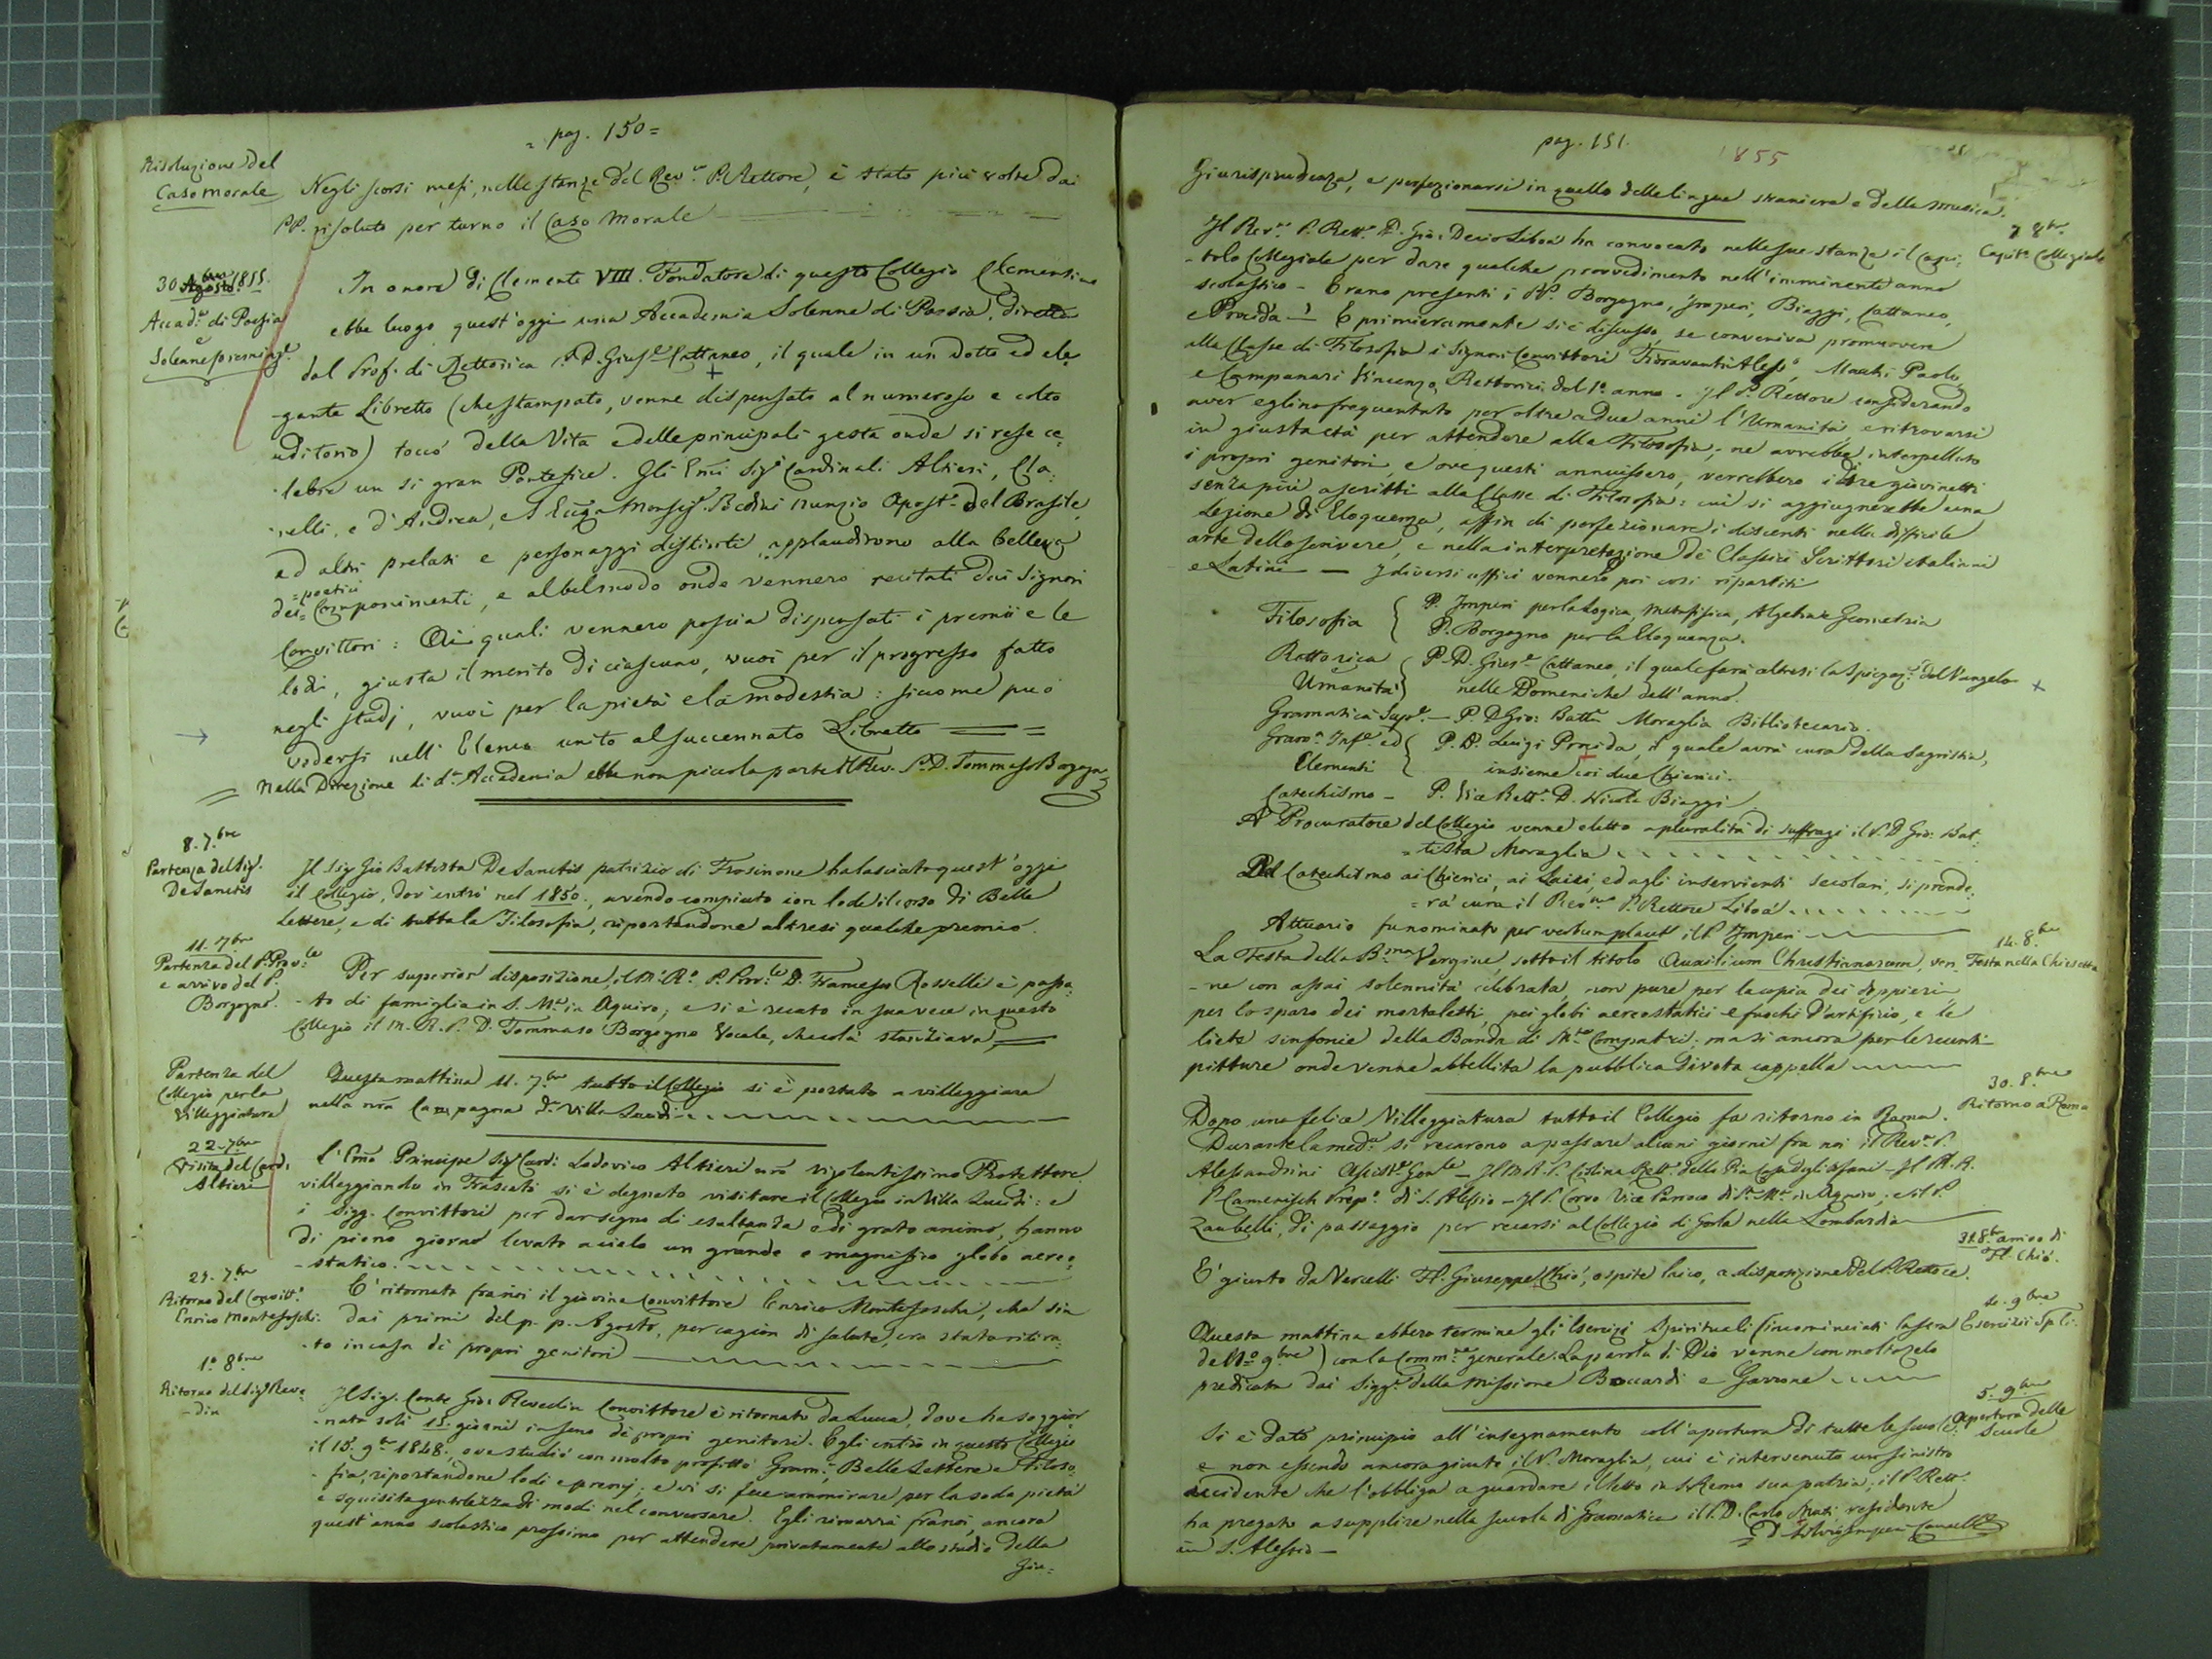 = pag. 150 =
Risoluzione del
Caso morale
Negli scorsi mesi, nelle stanze del Rev.º P. Rettore, è stato più volte dai
PP. risoluto per turno il Caso Morale
30 Agosto 1855.
Accad.ª di Poesia
e
Solenne premiaz.e
In onore di Clemente VIII. Fondatore di questo Collegio Clementino
ebbe luogo quest'oggi una Accademia Solenne di Poesia, diretta
dal Prof. di Rettorica P. D. Gius.e Cattaneo, il quale in un dotto ed ele-
-gante Libretto (che, stampato, venne dispensato al numeroso e colto
uditorio) toccò della Vita e delle principali gesta onde si rese ce-
-lebre un sì gran Pontefice. Gli Emi Sig.i Cardinali Altieri, Cla-
-relli, e d'Andrea, S. Ecc.za Monsig.r Bedini Nunzio Apost.º del Brasile,
ed altri prelati e personaggi distinti applaudirono alla bellezza
=poetici
dei= Componimenti, e al bel modo onde vennero recitati dai Signori
Convittori: Ai quali vennero poscia dispensati i premii e le
lodi, giusta il merito di ciascuno, vuoi per il progresso fatto
negli studj, vuoi per la pietà e la modestia: siccome può
vedersi nell'Elenco unito al succennato Libretto
Nella Direzione di d.ª Accademia ebbe non piccola parte il Rev. P. D. Tommaso Borgogno
8. 7.bre
Partenza del Sig.
De Sanctis
Il Sig Gio Battista De Sanctis patrizio di Frosinone ha lasciato quest'oggi
il Collegio, dov'entrò nel 1850., avendo compiuto con lode il corso di Belle
Lettere, e di tutta la Filosofia, riportandone altresì qualche premio.
11. 7bre
Partenza del P. Prov.le
e arrivo del P.
Borgogno.
Per superior disposizione, il M. R.º P. Prov.le D. Francesco Rosselli è passa-
-to di famiglia in S. M.ª in Aquiro; e si è recato in sua vece in questo
Collegio il M. R. P. D. Tommaso Borgogno Vocale, che colà stanziava
Partenza del
Collegio per la
Villeggiatura
Questa mattina 11. 7.bre tutto il Collegio si è portato a villeggiare
nella nra Campagna d.ª Villa Lucidi
22. 7bre
Visita del Card.
Altieri
L'Emo Principe Sig. Card: Lodovico Altieri nro vigilantissimo Protettore
villeggiando in Frascati si è degnato visitare il Collegio in Villa Lucidi: e
i Sigg. Convittori per dar segno di esultanza e di grato animo, hanno
di pieno giorno levato a cielo un grande e magnifico globo aereo-
-statico
25. 7.bre
Ritorno del Convitt.e
Enrico Montefoschi.
È ritornato fra noi il giovine Convittore Enrico Montefoschi, che sin
dai primi del p. p. Agosto, per cagion di salute, era stato ritira-
-to in casa di propri genitori
1º 8bre
Ritorno del Sig Reve-
-din
Il Sig. Conte Gio: Revedin Convittore è ritornato da Lucca, dove ha soggior-
-nato soli 15. giorni in seno de' propri genitori. Egli entrò in questo Collegio
il 15. 9.bre 1848., ove studiò con molto profitto Gram.ª, Belle Lettere e Filoso-
-fia, riportandone lodi e premj; e vi si fece ammirare per la soda pietà
e squisita gentilezza di modi nel conversare. Egli rimarrà fra noi, ancora
quest'anno scolastico prossimo per attendere privatamente allo studio della
Giu-
pag. 151.
1855
Giurisprudenza, e perfezionarsi in quello delle lingue straniere e della musica.
7 8bre.
Capit.º Collegiale
Il Rev.º P. Rett.e D. Gio: Decio Libois ha convocato nelle sue stanze il Capi-
-tolo Collegiale per dare qualche provvedimento nell'imminente anno
scolastico - Erano presenti i PP. Borgogno, Imperi, Biaggi, Cattaneo,
e Procida - E primieramente si è discusso, se conveniva promuovere
alla Classe di Filosofia i Signori Convittori Fioravanti Aless.º, Macchi Paolo,
e Campanari Vincenzo, Rettorici del 1º anno. Il P. Rettore considerando
aver eglino frequentato per oltre a due anni l'Umanità, e ritrovarsi
in giusta età per attendere alla Filosofia; ne avrebbe interpellato
i propri genitori, e ove questi annuissero, verrebbero i tre giovinetti
senza più ascritti alla Classe di Filosofia: cui si aggiugnerebbe una
Lezione di Eloquenza, affin di perfezionare i discenti nella difficile
arte dello scrivere, e nella interpretazione de' Classici Scrittori italiani
e Latini — I diversi uffici vennero poi così ripartiti
Filosofia { P. Imperi per la Logica, Metafisica, Algebra e Geometria
P. Borgogno per la Eloquenza.
Rettorica
Umanità } P. D. Gius.e Cattaneo, il quale farà altresì la Spiegaz.e del Vangelo
nelle Domeniche dell'anno.
Gramatica Sup.e — P. D Gio: Batta Moraglia Bibliotecario.
Gram.ª Inf.e ed
Elementi { P. D. Luigi Procida, il quale avrà cura della Sagristia,
insieme coi due Chierici.
Catechismo — P. Vice Rett.e D. Nicola Biaggi
A Procuratore del Collegio venne eletto a pluralità di suffragi il P. D Gio: Bat-
=tista Moraglia
Del Catechismo ai Chierici, ai Laici, ed agli inservienti secolari, si prende-
=rà cura il Rev.mo P. Rettore Libois
Attuario fu nominato per verbum placet il P. Imperi
14. 8.bre
Festa nella Chiesetta
La Festa della B.ma Vergine, sotto il titolo Auxilium Christianorum, ven-
-ne con assai solennità celebrata, non pure per la copia dei doppieri
per lo sparo dei mortaletti, pei globi aereostatici e fuochi d'artifizio, e le
liete sinfonie della Banda di M.te Compatri: ma sì ancora per le recenti
pitture onde venne abbellita la pubblica divota cappella
30. 8.bre
Ritorno a Roma
Dopo una felice Villeggiatura tutto il Collegio fa ritorno in Roma.
Durante la med.ª si recarono a passare alcuni giorni fra noi il Rev.º P.
Alessandrini Assist.e Gen.le — Il M. R. P. Cortina Rett.e della Pia Casa degli Orfani — Il M. R.
P. Camenisch Prep.º di S. Alessio — Il P. Corvo Vice Parroco di S. M.ª in Aquiro; e il P.
Zambelli, di passaggio per recarsi al Collegio di Gorla nella Lombardia
31. 8.bre arrivo di
Fl. Chiò.
È giunto da Vercelli Fl. Giuseppe Chiò, ospite laico, a disposizione del P. Rettore.
4. 9bre
Esercizi Sp.li.
Questa mattina ebbero termine gli Esercizi Spirituali (incominciati la sera
del 1º 9bre) con la Comm.ne generale. La parola di Dio venne con molto zelo
predicata dai Sigg.i della Missione Boccardi e Garrone
5. 9bre
Apertura delle
Scuole
Si è dato principio all'insegnamento coll'apertura di tutte le scuole:
e non essendo ancora giunto il P. Moraglia, cui è intervenuto un sinistro
accidente che l'obbliga a guardare il letto in S. Remo sua patria; il P. Rett.
ha pregato a supplire nella scuola di Gramatica il P. D. Carlo Muti, residente
in S. Alessio —
D Silvio Imperi Cancell.e